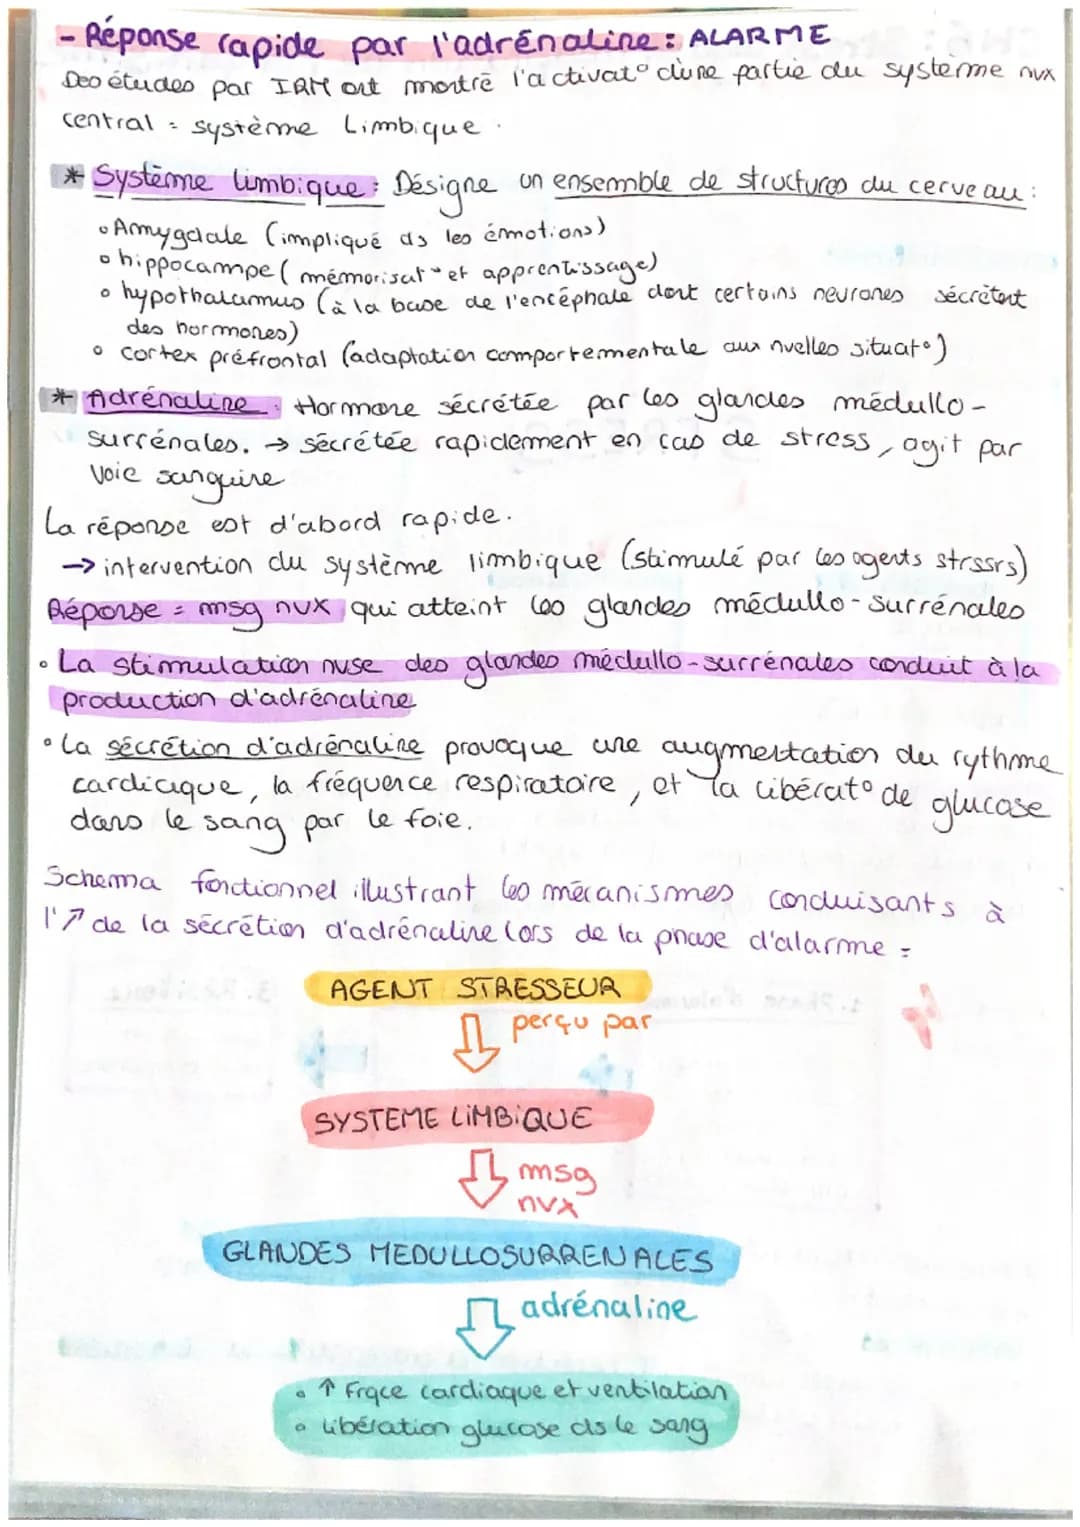 - Réponse rapide par l'adrénaline : ALARME
Des études par IRM ont montré l'activat° d'une partie du système nvx
central = système Limbique.
* Système limbique : Désigne un ensemble de structures du cerveau :
• Amygdale (impliqué ds les émotions)
• hippocampe (mémorisat° et apprentissage)
• hypothalamus (à la base de l'encéphale dont certains neurones sécrètent
des hormones)
• cortex préfrontal (adaptation comportementale aux nvelles situat°)
* Adrénaline : Hormone sécrétée par les glandes médullo-
surrénales. → sécrétée rapidement en cas de stress, agit par
voie sanguine
La réponse est d'abord rapide.
→ intervention du système limbique (stimulé par les agents strssrs)
Réponse = msg nvx qui atteint les glandes médullo-surrénales
• La stimulation nvse des glandes médullo-surrénales conduit à la
production d'adrénaline
• La sécrétion d'adrénaline provoque une augmentation du rythme
cardiaque, la fréquence respiratoire, et la libérat° de glucose
dans le sang par le foie.
Schema fonctionnel illustrant les mécanismes conduisants à
l'↗ de la sécrétion d'adrénaline lors de la phase d'alarme =
AGENT STRESSEUR
perçu par
SYSTEME LIMBIQUE
msg
nvx
GLANDES MEDULLOSURRENALES
adrénaline
• ↑ Frqce cardiaque et ventilation
• libération glucose ds le sang